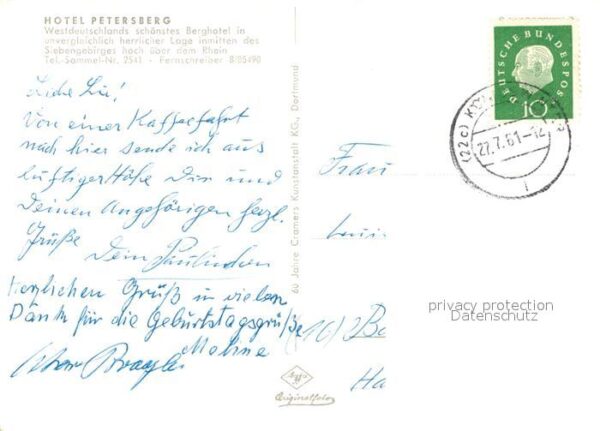 HOTEL PETERSBERG
Westdeutschlands schönstes Berghotel in
unvergleichlich herrlicher Lage inmitten des
Siebengebirges hoch über dem Rhein
Tel.-Sammel-Nr. 2541 - Fernschreiber 8185490
Von einer Kaffeefahrt
nach hier sende ich aus
luftiger Höhe Dir und
Deinen Angehörigen herzl.
Grüße
Dein Paulinchen
Herzlichen Gruß in vielen
Dank für die Geburtstagsgrüße
60 Jahre Cramers Kunstanstalt KG., Dortmund
Agfa
Originalfoto
DEUTSCHE BUNDESPOST
10
(22c)
27.7.61-12
Frau
(16)
privacy protection
Datenschutz